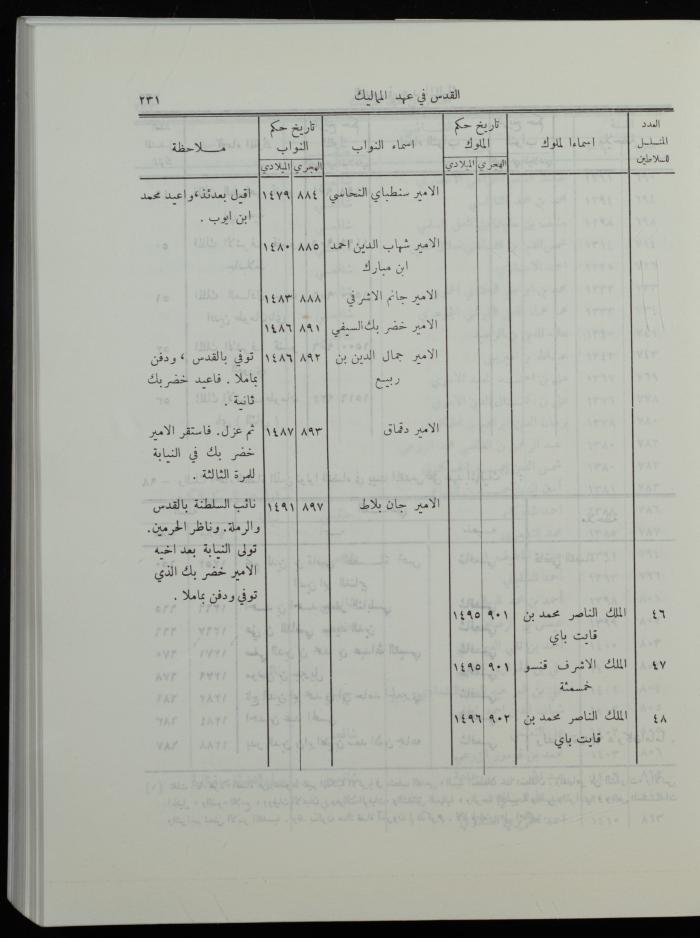 القدس في عهد المماليك ٢٣١
العدد المتسلسل للسلاطين | اسماءا لملوك | تاريخ حكم الملوك | اسماء النواب | تاريخ حكم النواب | مـلاحظة
الهجري | الميلادي | الهجري | الميلادي
الامير سنطباي النحاسي | ٨٨٤ | ١٤٧٩ | اقيل بعدئذ، واعيد محمد
ابن ايوب .
الامير شهاب الدين احمد | ٨٨٥ | ١٤٨٠
ابن مبارك
الامير جانم الاشرفي | ٨٨٨ | ١٤٨٣
الامير خضر بك السيفي | ٨٩١ | ١٤٨٦
الامير جمال الدين بن | ٨٩٢ | ١٤٨٦ | توفي بالقدس ، ودفن
ربيع | بماملا . فاعيد خضر بك
ثانية .
الامير دقماق | ٨٩٣ | ١٤٨٧ | ثم عزل. فاستقر الامير
خضر بك في النيابة
للمرة الثالثة .
الامير جان بلاط | ٨٩٧ | ١٤٩١ | نائب السلطنة بالقدس
والرملة. وناظر الحرمين.
تولى النيابة بعد اخيه
الامير خضر بك الذي
توفي ودفن بماملا .
٤٦ | الملك الناصر محمد بن | ٩٠١ | ١٤٩٥
قايت باي
٤٧ | الملك الاشرف قنسو | ٩٠١ | ١٤٩٥
خمسمئة
٤٨ | الملك الناصر محمد بن | ٩٠٢ | ١٤٩٦
قايت باي